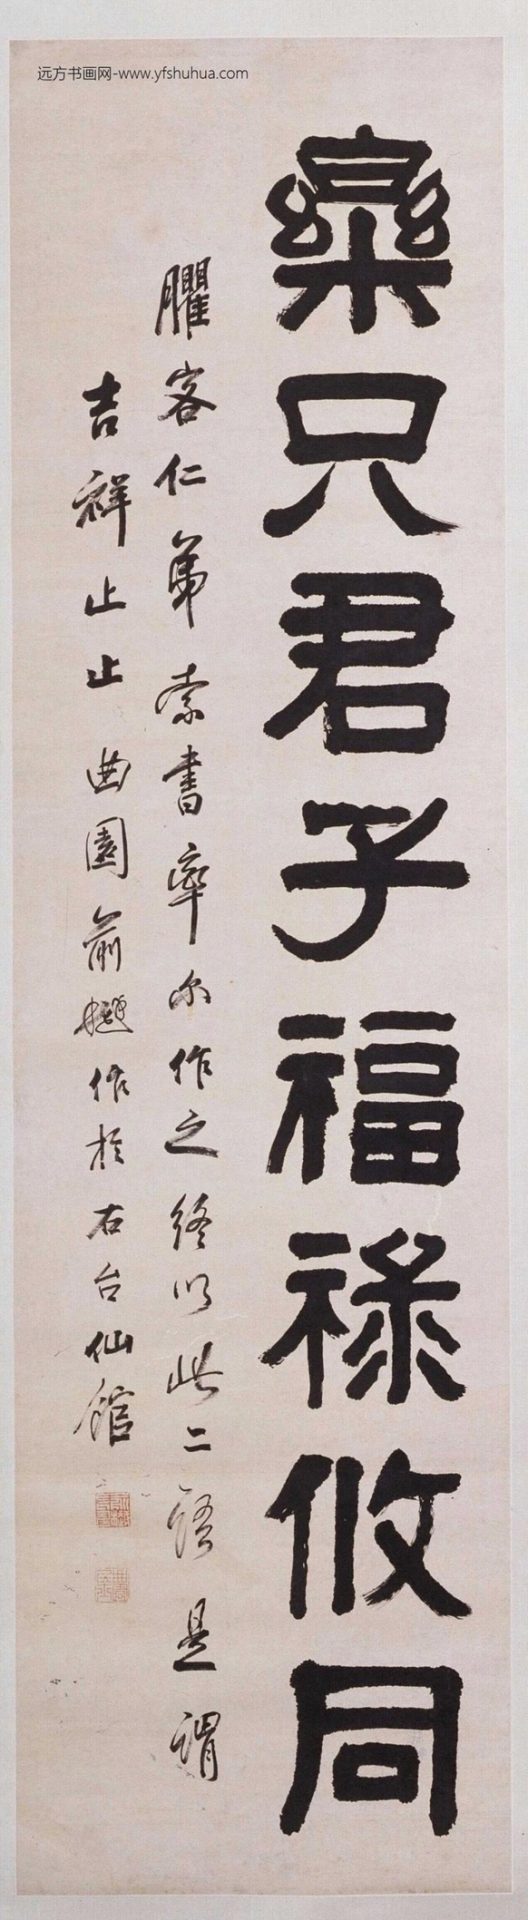 远方书画网-www.yfshuhua.com
樂只君子福祿攸同
臞客仁弟索書率尔作之終以此二語是謂
吉祥止止曲園俞樾作於右台仙館